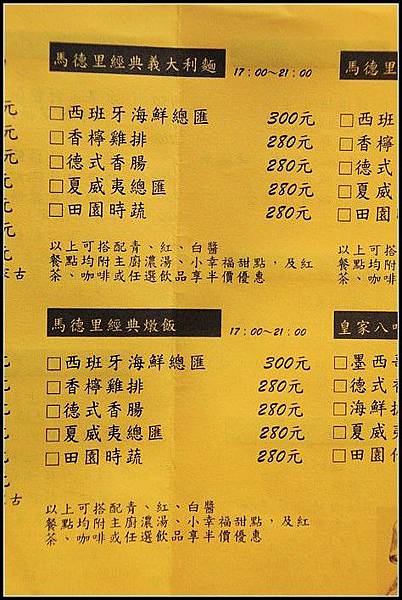 馬德里經典義大利麵 17:00~21:00
□西班牙海鮮總匯 300元
□香檸雞排 280元
□德式香腸 280元
□夏威夷總匯 280元
□田園時蔬 280元
以上可搭配青、紅、白醬
餐點均附主廚濃湯、小幸福甜點,及紅
茶、咖啡或任選飲品享半價優惠
馬德里經典燉飯 17:00~21:00
□西班牙海鮮總匯 300元
□香檸雞排 280元
□德式香腸 280元
□夏威夷總匯 280元
□田園時蔬 280元
以上可搭配青、紅、白醬
餐點均附主廚濃湯、小幸福甜點,及紅
茶、咖啡或任選飲品享半價優惠
馬德里
□西班
□香檸
□德式
□夏威
□田園
以上可搭
餐點均附
茶、咖啡
皇家八
□墨西
□德式
□海鮮
□夏威夷
□田園
元
元
元
元
元
元
古
元
元
元
元
古